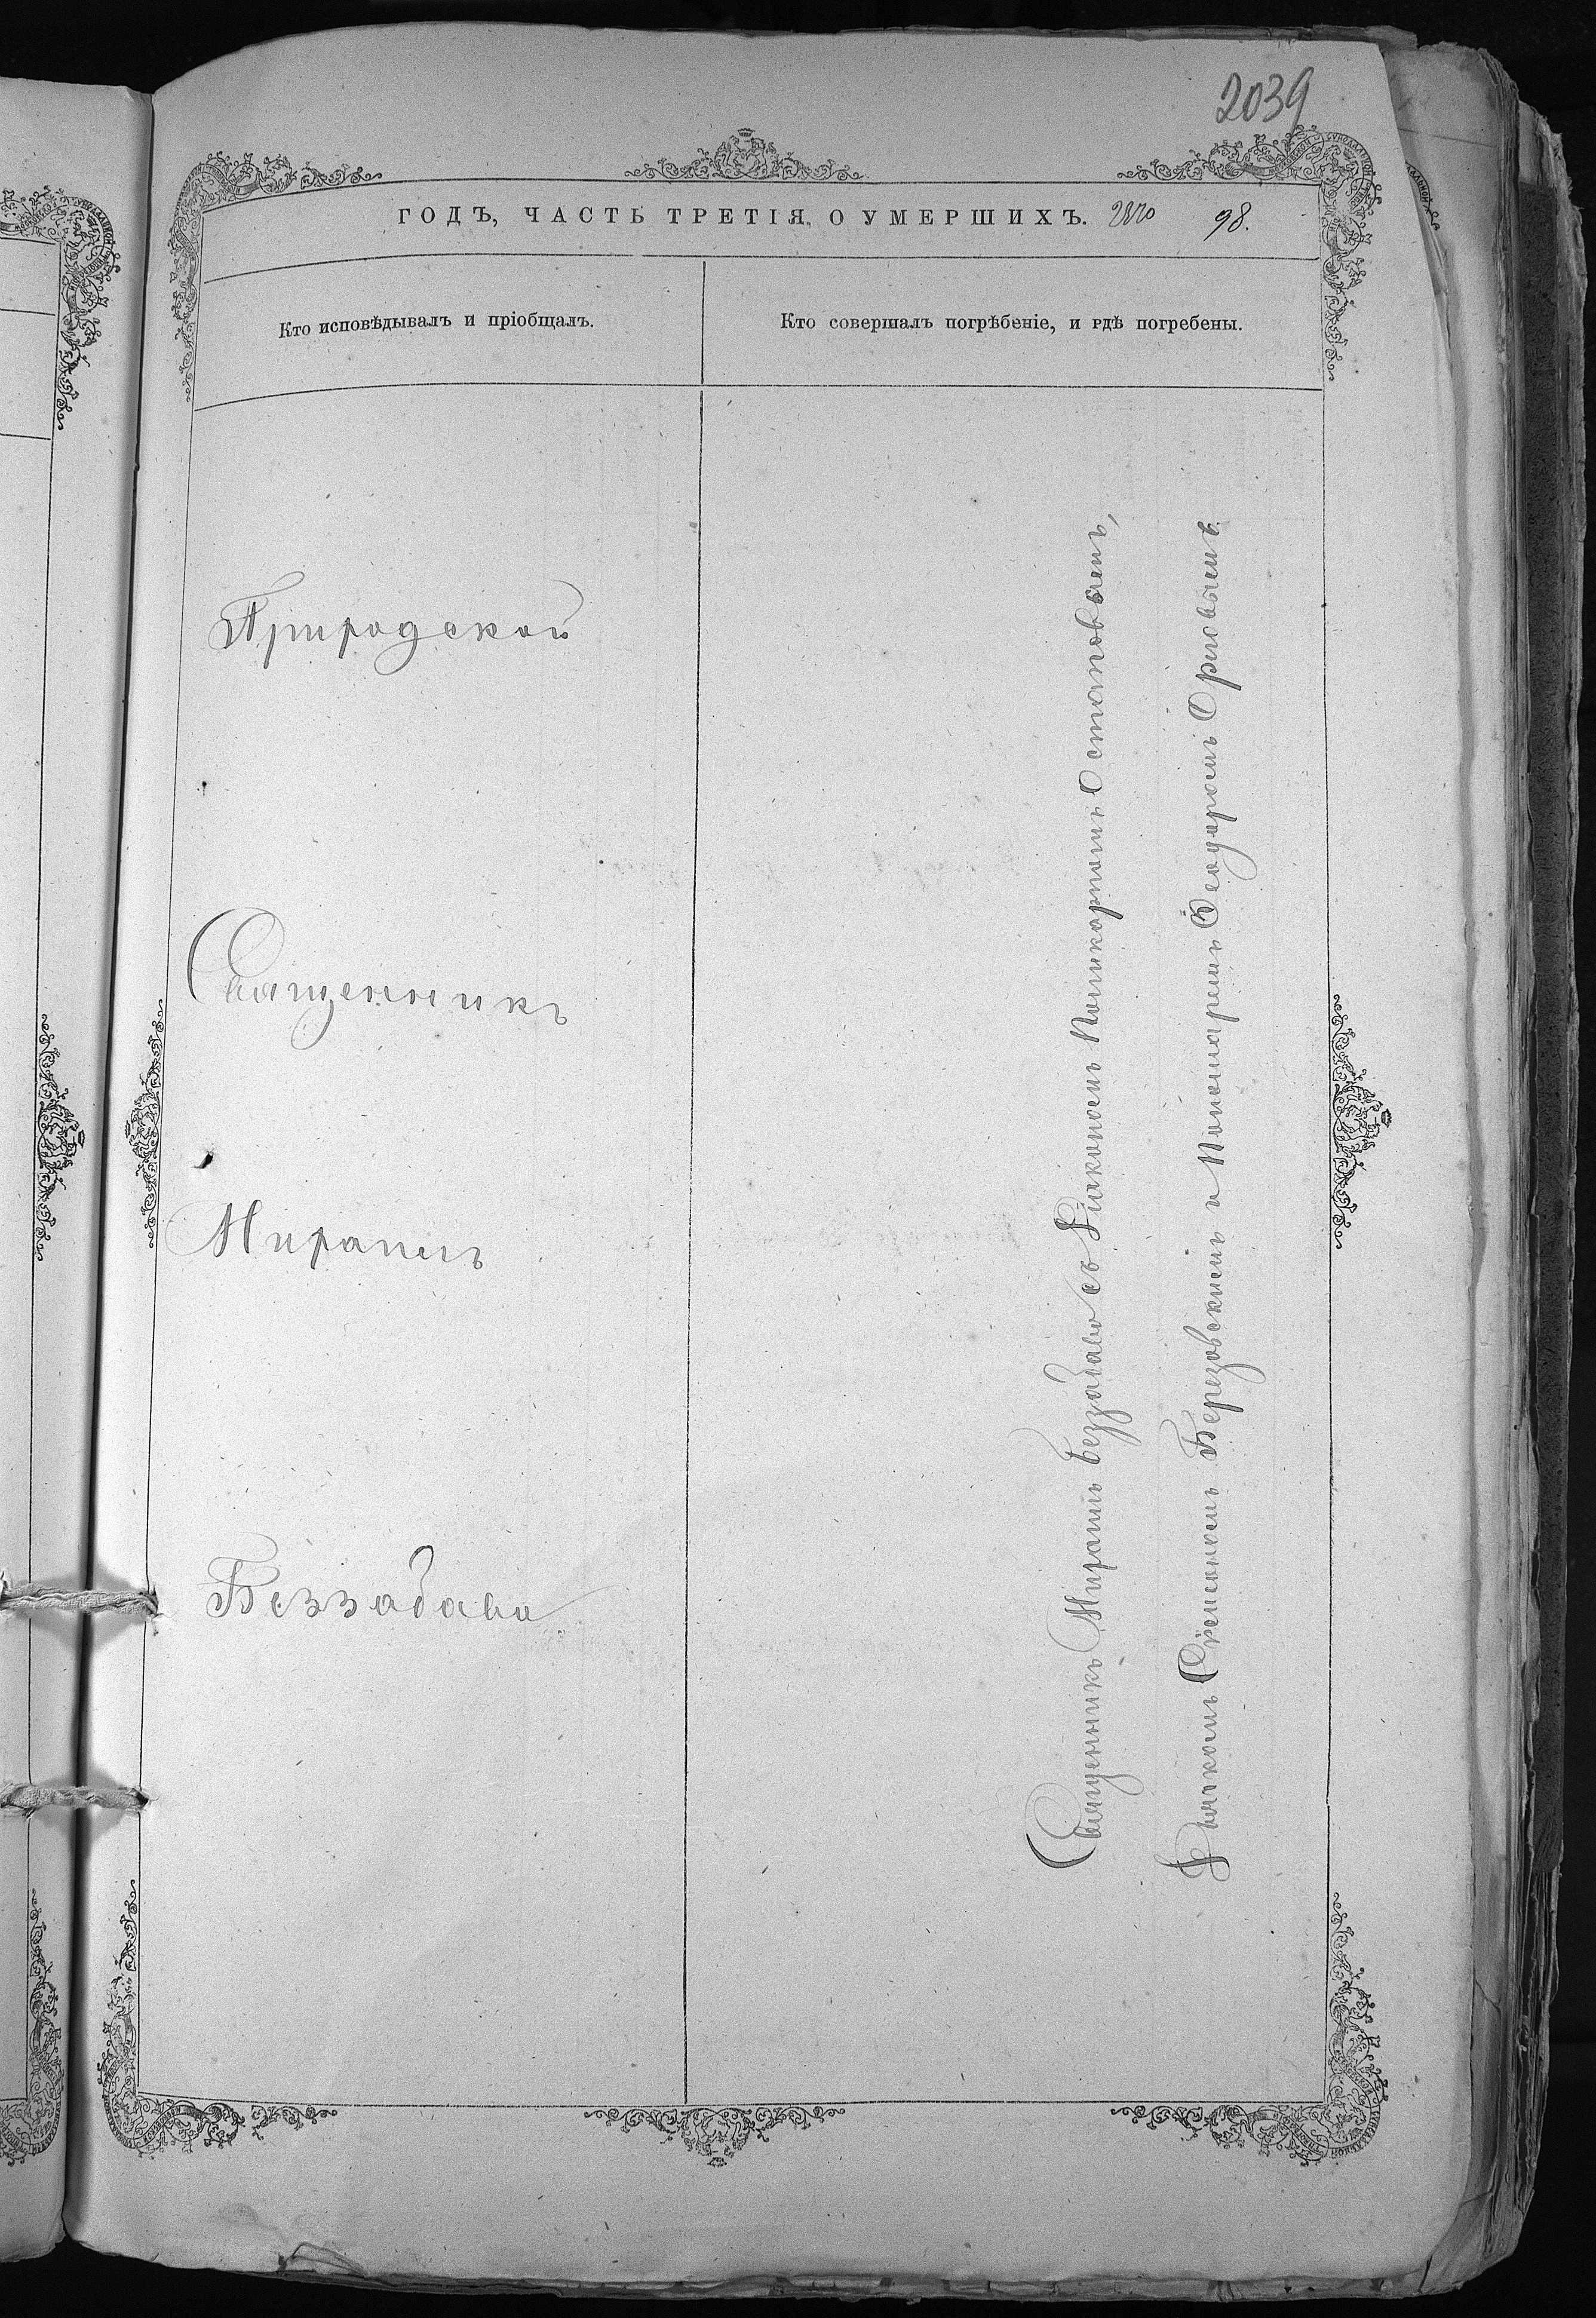 2039
ГОДЪ, ЧАСТЬ ТРЕТІЯ, О УМЕРШИХЪ. 98.
Кто исповѣдывалъ и пріобщалъ.
Кто совершалъ погрѣбеніе, и гдѣ погребены.
Приходской
Священникъ
Миронъ
Беззабава
Священникъ Миронъ Беззабава съ Діакономъ Поликарпомъ Остаповымъ,
Дьякомъ Сѵмеономъ Березовскимъ и Пономаремъ Ѳеодоромъ Орловымъ